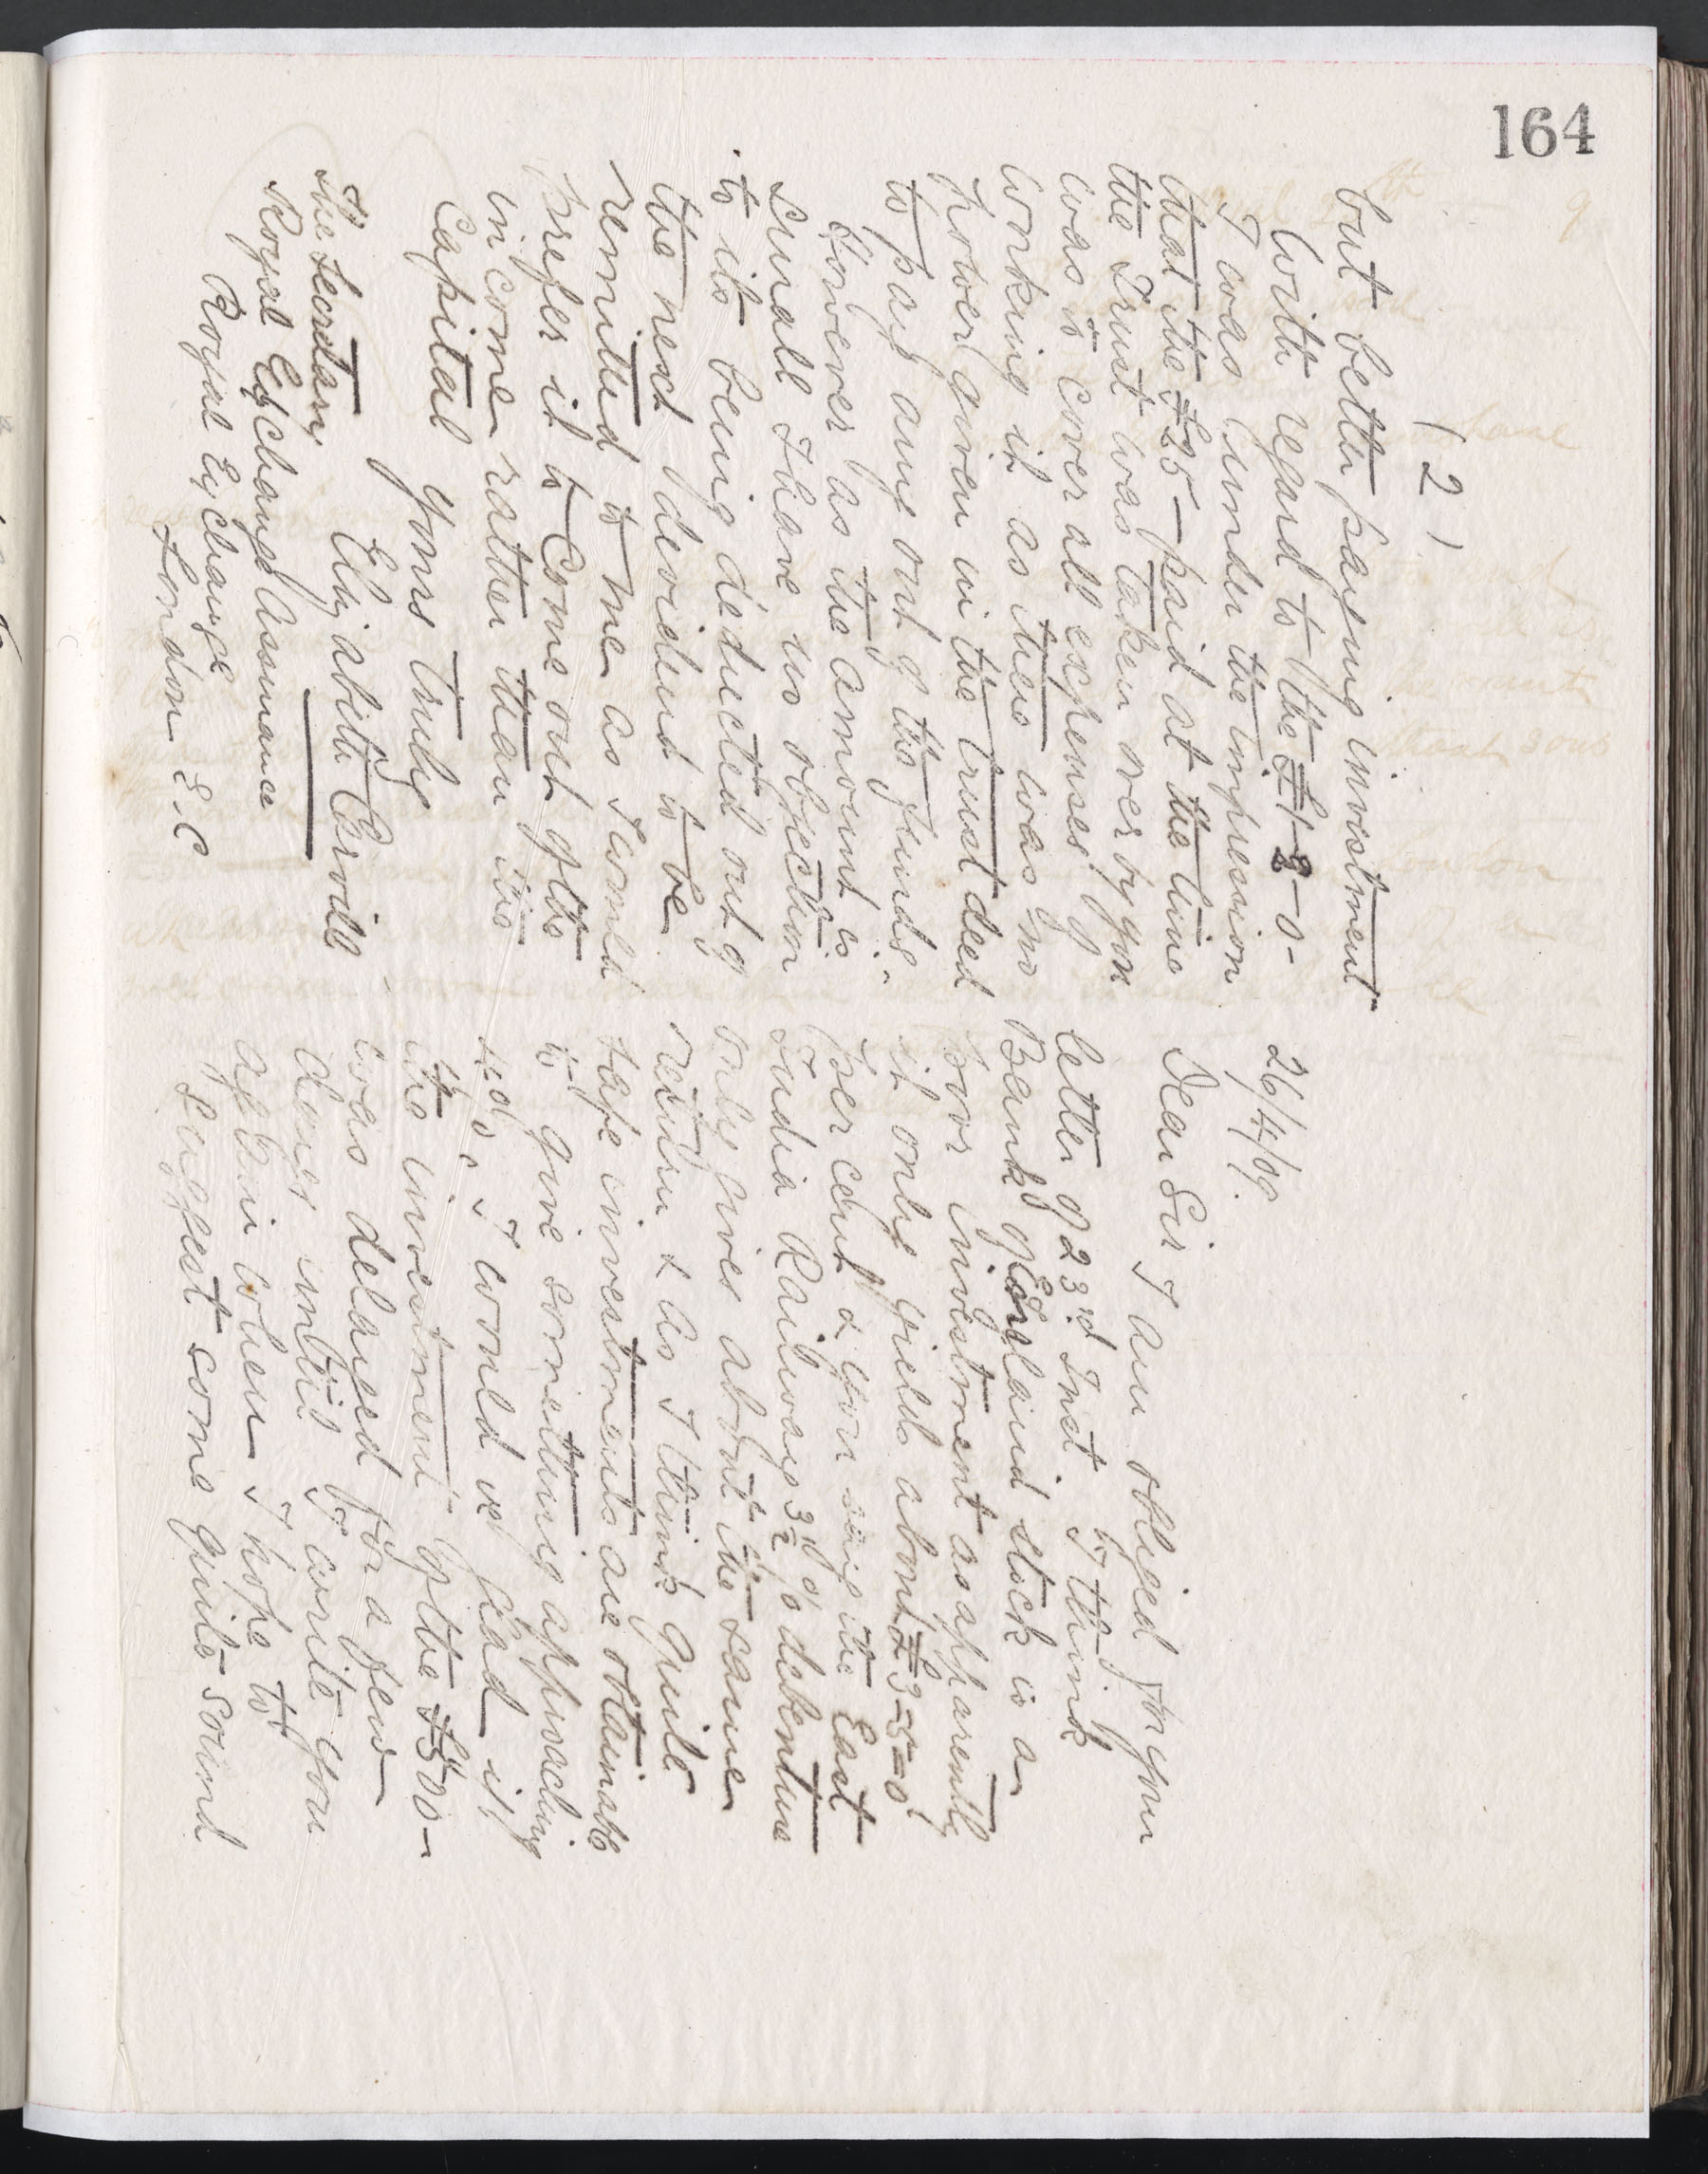 164
26/4/09.
Dear Sir I am obliged for your
letter of 23rd Inst. I think
Bank of England stock is a
poor investment as apparently
it only yields about £3-5-0
per cent & you say the East
India Railway 3½ % debenture
only gives about the same
return & as I think quite
safe investments are obtainable
to give something approaching
4%, I would be glad if
the investment of the £500-
was delayed for a few
days until I write you
again when I hope to
suggest some quite sound
( 2 )
but better paying investment
With regard to the £1-8-0-
I was under the impression
that the £25- paid at the time
the Trust was taken over by you
was to cover all expenses of
working it as there was no
power given in the trust deed
to pay any out of the funds.
However as the amount is
small I have no objection
to its being deducted out of
the next dividend to be
remitted to me as I would
prefer it to come out of the
income rather than the
Capital
Yours truly
Elizabeth Ervill
The Secretary
Royal Exchange Assurance
Royal Exchange
London E.C